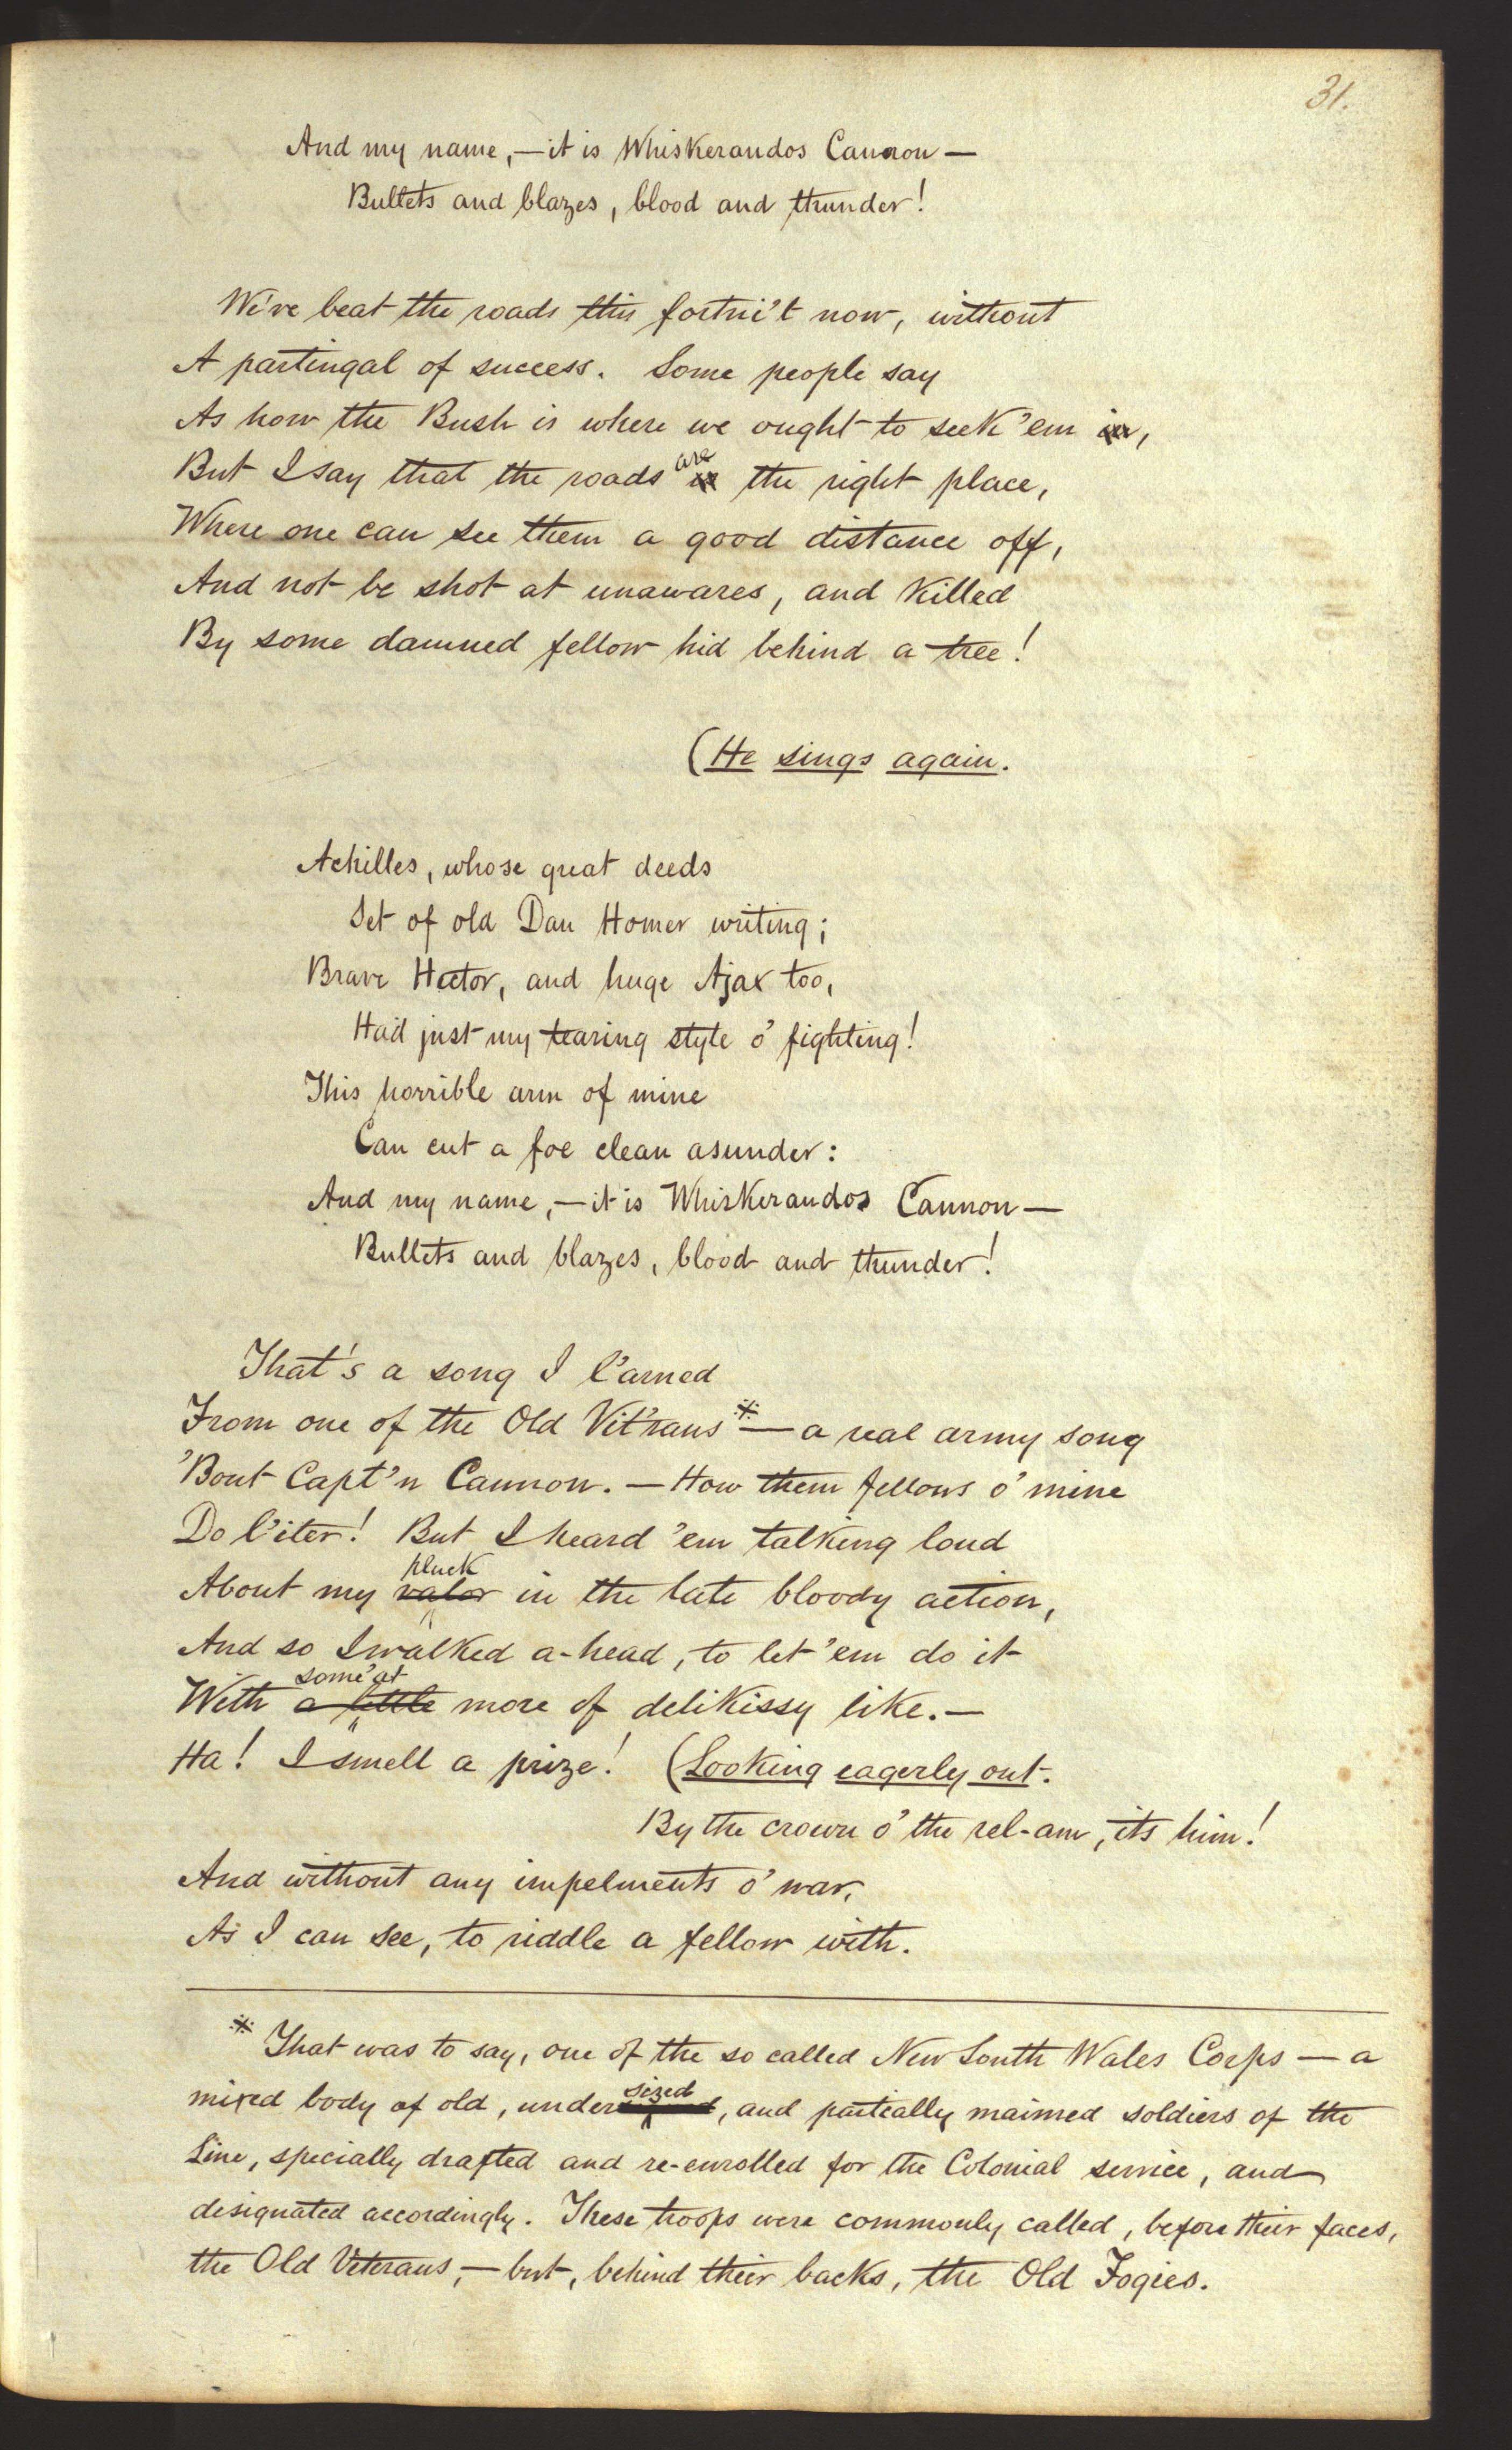 31.
And my name,—it is Whiskerandos Cannon—
Bullets and blazes, blood and thunder!
We've beat the roads this fortni't now, without
A partingal of success. Some people say
As how the Bush is where we ought to seek 'em in,
But I say that the roads are the right place,
Where one can see them a good distance off,
And not be shot at unawares, and killed
By some damned fellow hid behind a tree!
(He sings again.
Achilles, whose great deeds
Set of old Dan Homer writing;
Brave Hector, and huge Ajax too,
Had just my tearing style o' fighting!
This horrible arm of mine
Can cut a foe clean asunder:
And my name,—it is Whiskerandos Cannon—
Bullets and blazes, blood and thunder!
That's a song I l'arned
From one of the Old Vit'rans*—a real army song
'Bout Capt'n Cannon.—How them fellows o' mine
Do l'iter! But I heard 'em talking loud
About my valor pluck in the late bloody action,
And so I walked a-head, to let 'em do it
With a little some'at more of delikissy like.—
Ha! I smell a prize! (Looking eagerly out.
By the crown o' the rel-am, its him!
And without any impelments o' war,
As I can see, to riddle a fellow with.
* That was to say, one of the so called New South Wales Corps—a
mixed body of old, undersized, and partially maimed soldiers of the
Line, specially drafted and re-enrolled for the Colonial service, and
designated accordingly. These troops were commonly called, before their faces,
the Old Veterans,—but, behind their backs, the Old Fogies.